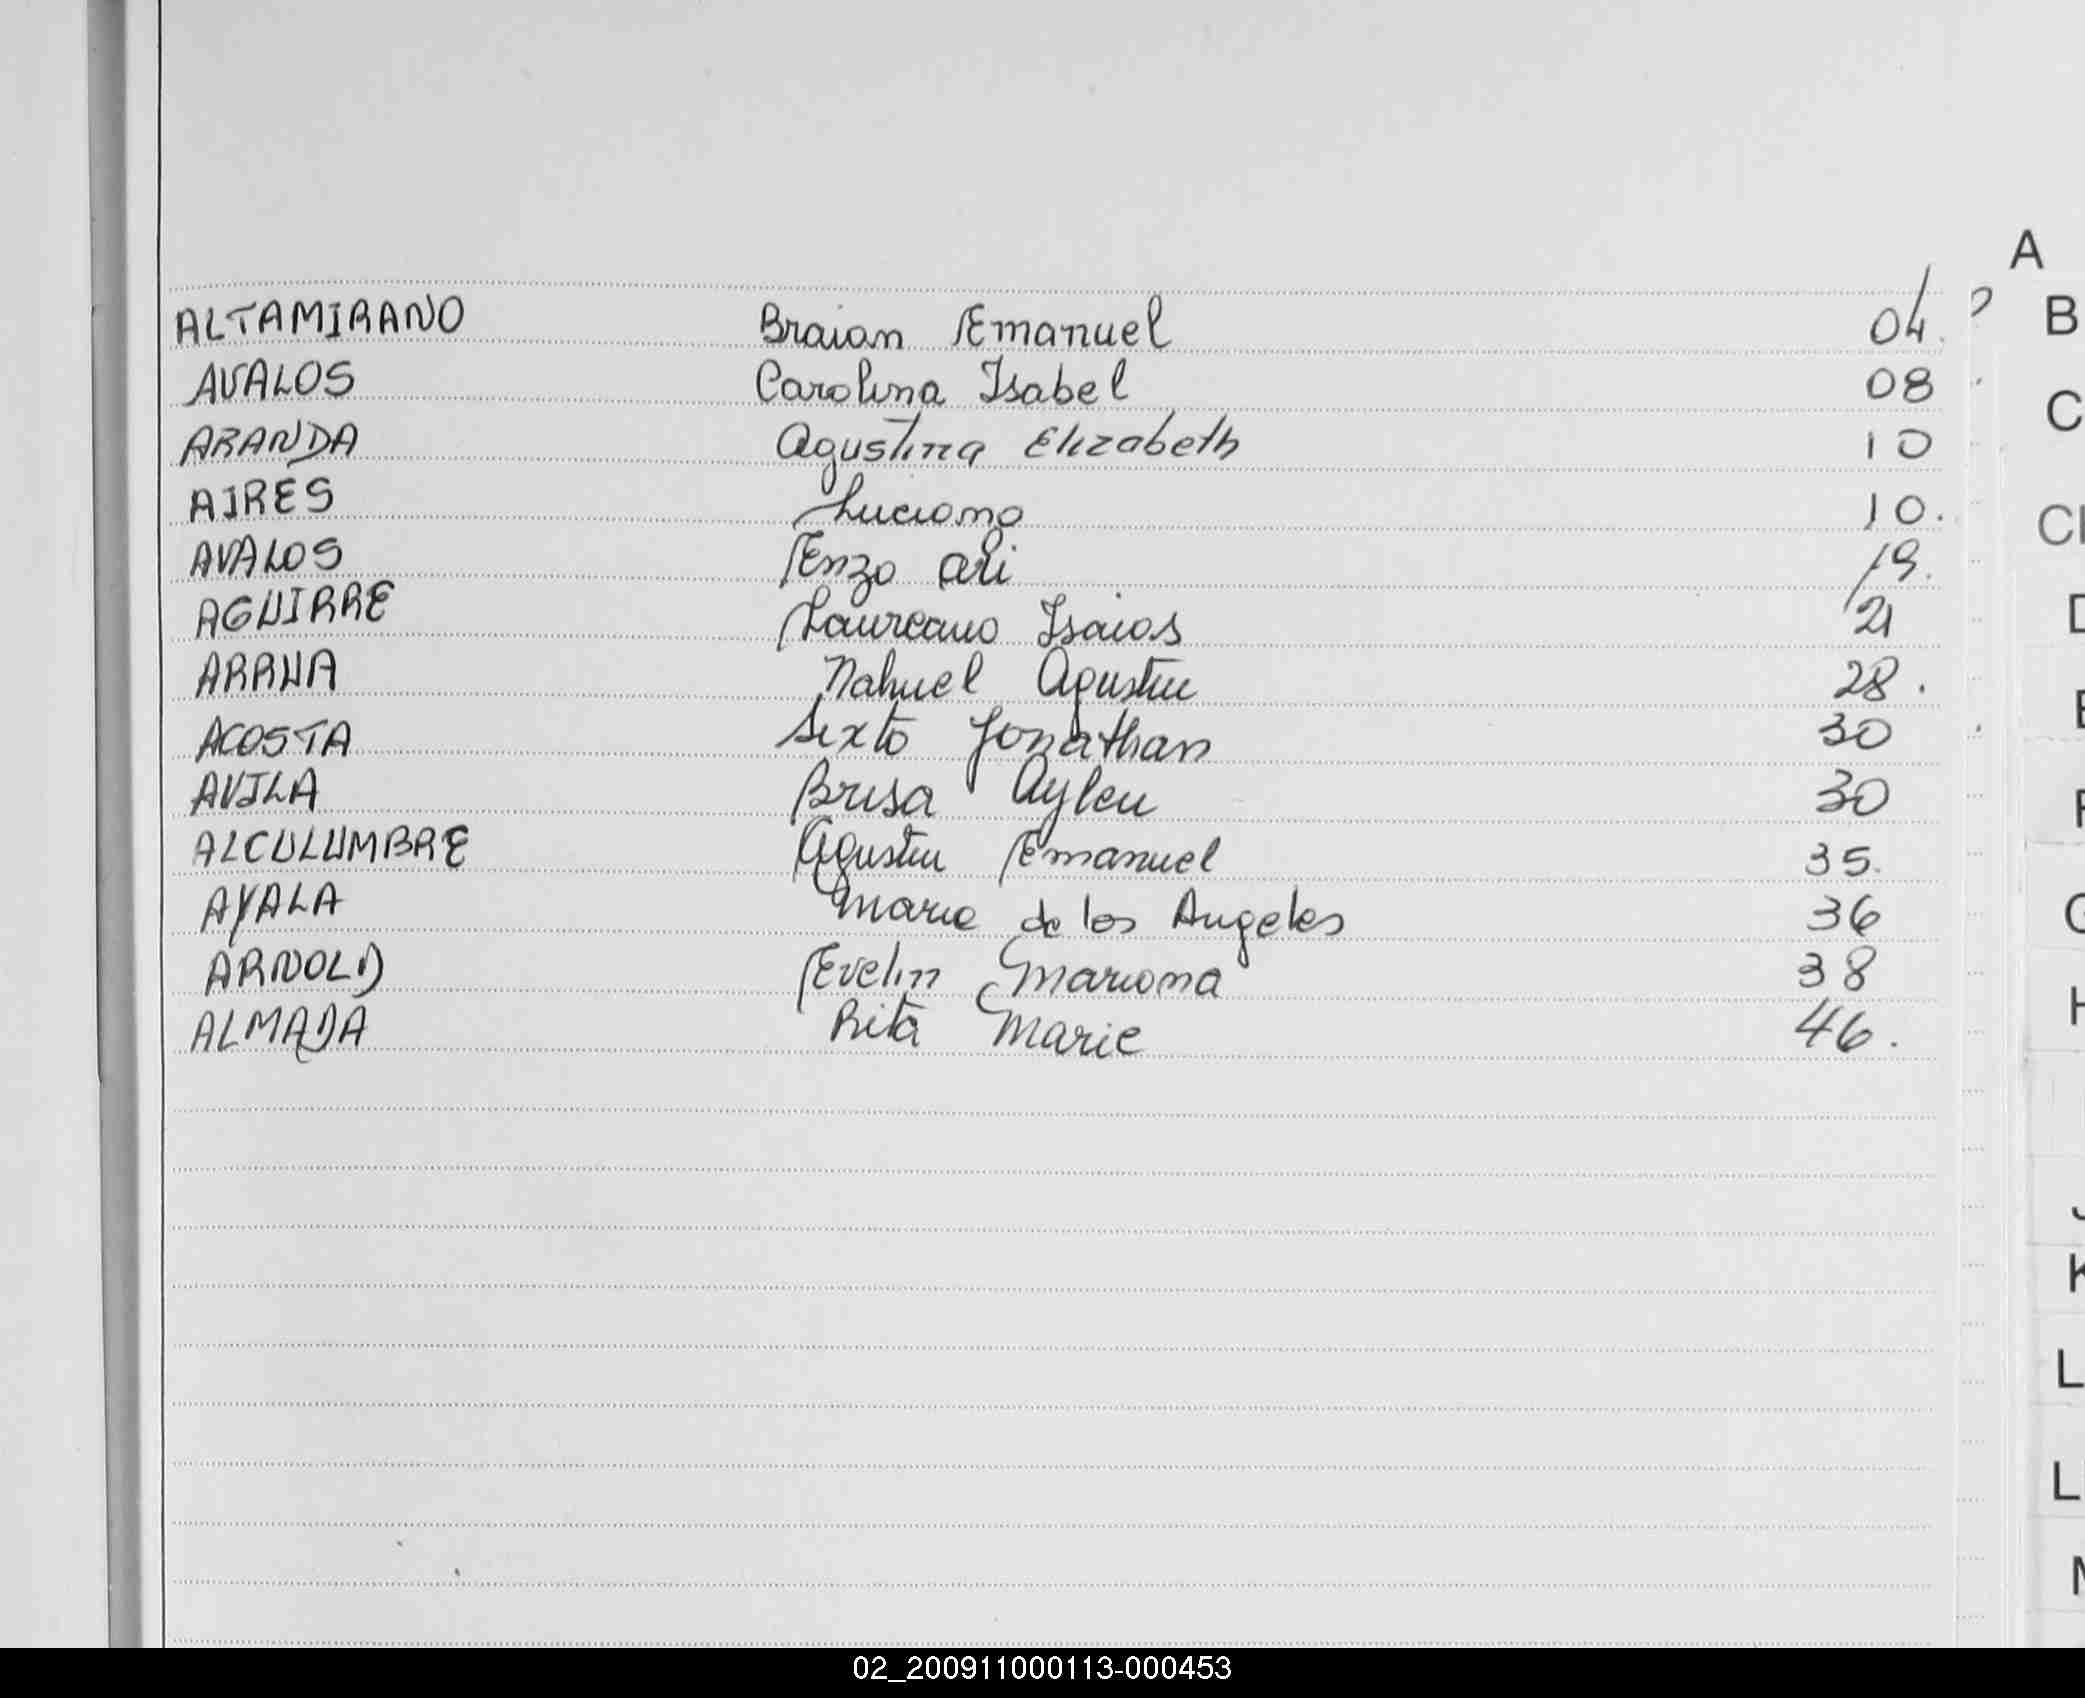 A
ALTAMIRANO Braian Emanuel 04.
B
AVALOS Carolina Isabel 08
C
ARANDA Agustina Elizabeth 10
AIRES Luciano 10.
AVALOS Enzo Ali 19.
AGUIRRE Laureano Isaias 21
ARRUA Nahuel Agustin 28.
ACOSTA Sixto Jonathan 30
AVILA Brisa Aylen 30
ALCULUMBRE Agustin Emanuel 35.
AYALA Maria de los Angeles 36
G
ARNOLD Evelin Mariana 38
H
ALMADA Rita Maria 46.
J
K
L
L
02_200911000113-000453